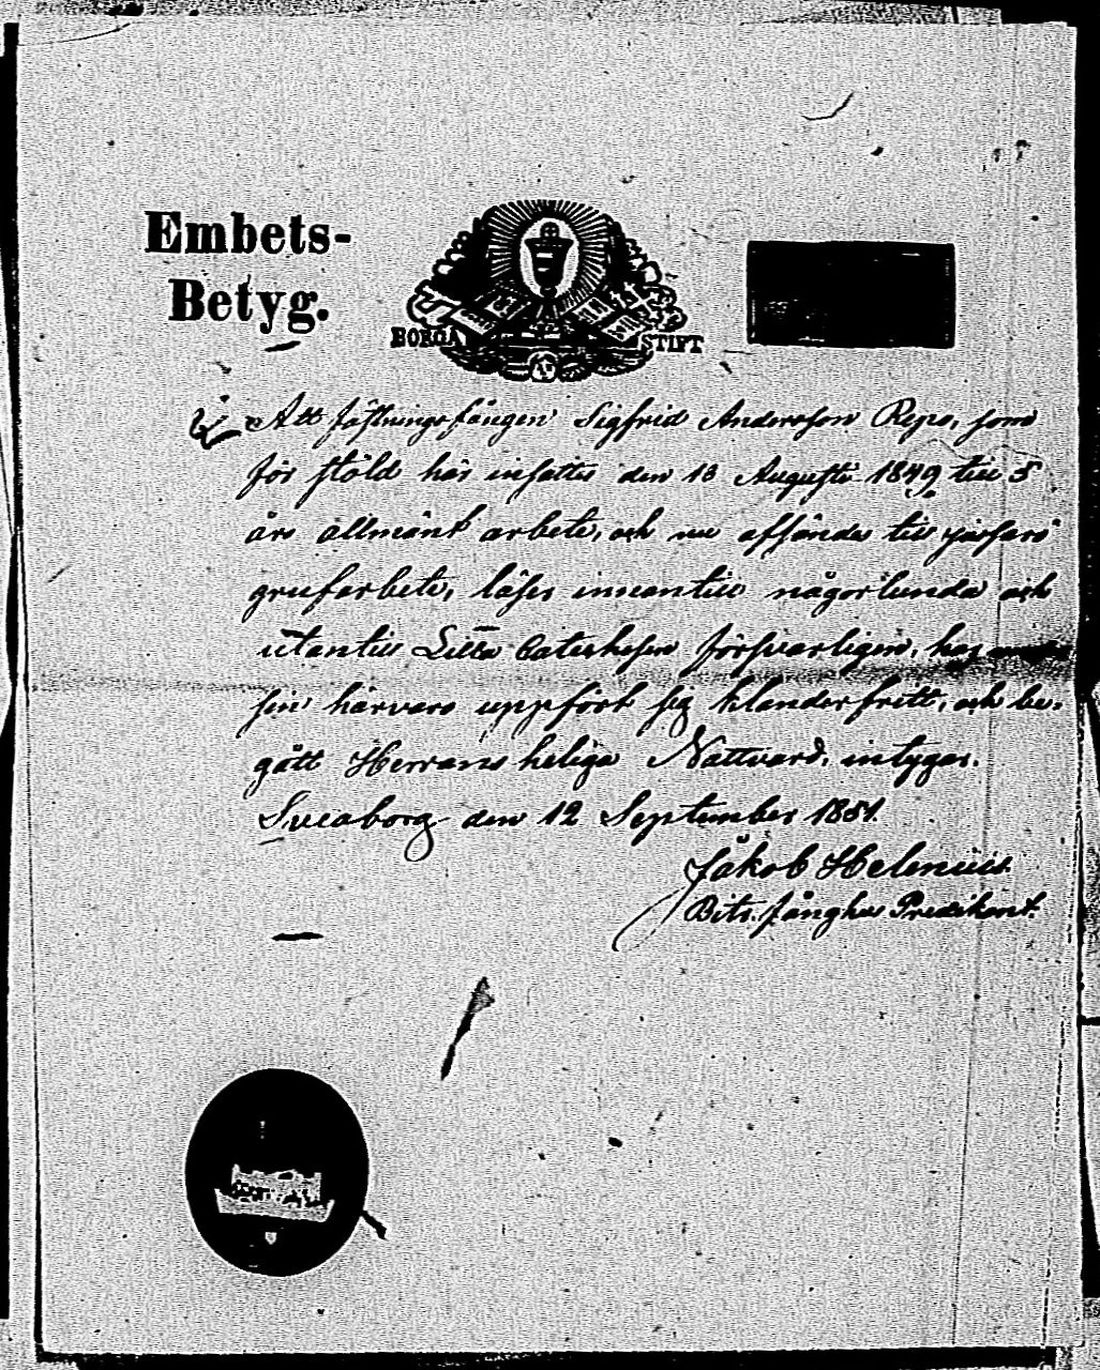 Embets-
Betyg.
BORGÅ STIFT
Att fästningsfången Sigfrid Andersson Repo, som
för stöld här insattes den 13 Augusti 1849 till 5
års allmänt arbete, och nu afsändes till
grufarbete, läser innantill någorlunda och
utantill Lilla Catechesen försvarligen, har
sin härvaro uppfört sig klanderfritt, och be-
gått Herrans heliga Nattvard, intygar.
Sveaborg den 12 September 1851.
Jakob Helenius
Bitr. Fånghus Predikant.